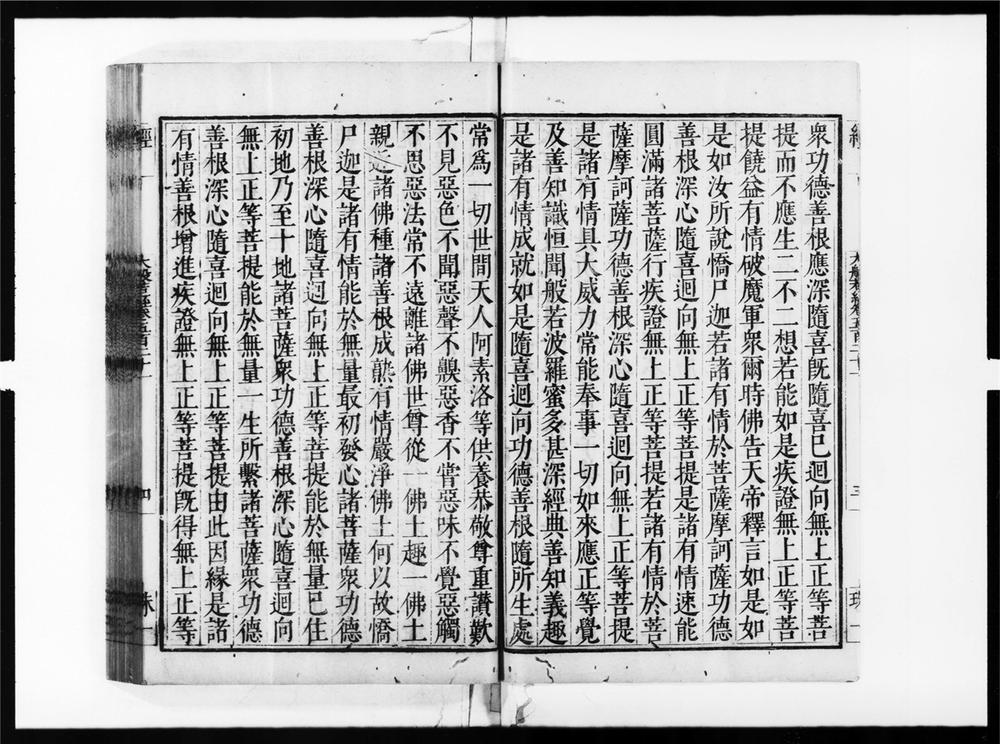 衆功德善根應深隨喜既隨喜已迴向無上正等菩
提而不應生二不二想若能如是疾證無上正等菩
提饒益有情破魔軍衆爾時佛告天帝釋言如是如
是如汝所說憍尸迦若諸有情於菩薩摩訶薩功德
善根深心隨喜迴向無上正等菩提是諸有情速能
圓滿諸菩薩行疾證無上正等菩提若諸有情於菩
薩摩訶薩功德善根深心隨喜迴向無上正等菩提
是諸有情具大威力常能奉事一切如來應正等覺
及善知識恒聞般若波羅蜜多甚深經典善知義趣
是諸有情成就如是隨喜迴向功德善根隨所生處
常爲一切世間天人阿素洛等供養恭敬尊重讚歎
不見惡色不聞惡聲不齅惡香不甞惡味不覺惡觸
不思惡法常不遠離諸佛世尊從一佛土趣一佛土
親近諸佛種諸善根成熟有情嚴淨佛土何以故憍
尸迦是諸有情能於無量最初發心諸菩薩衆功德
善根深心隨喜迴向無上正等菩提能於無量已住
初地乃至十地諸菩薩衆功德善根深心隨喜迴向
無上正等菩提能於無量一生所繫諸菩薩衆功德
善根深心隨喜迴向無上正等菩提由此因緣是諸
有情善根增進疾證無上正等菩提既得無上正等
經